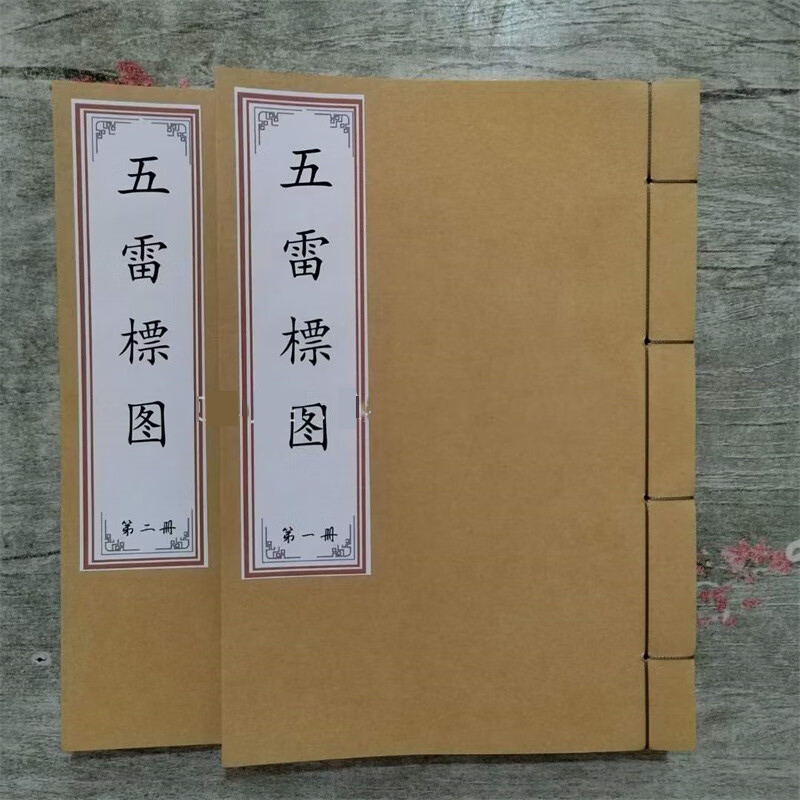 五雷標图
第二册
五雷標图
第一册